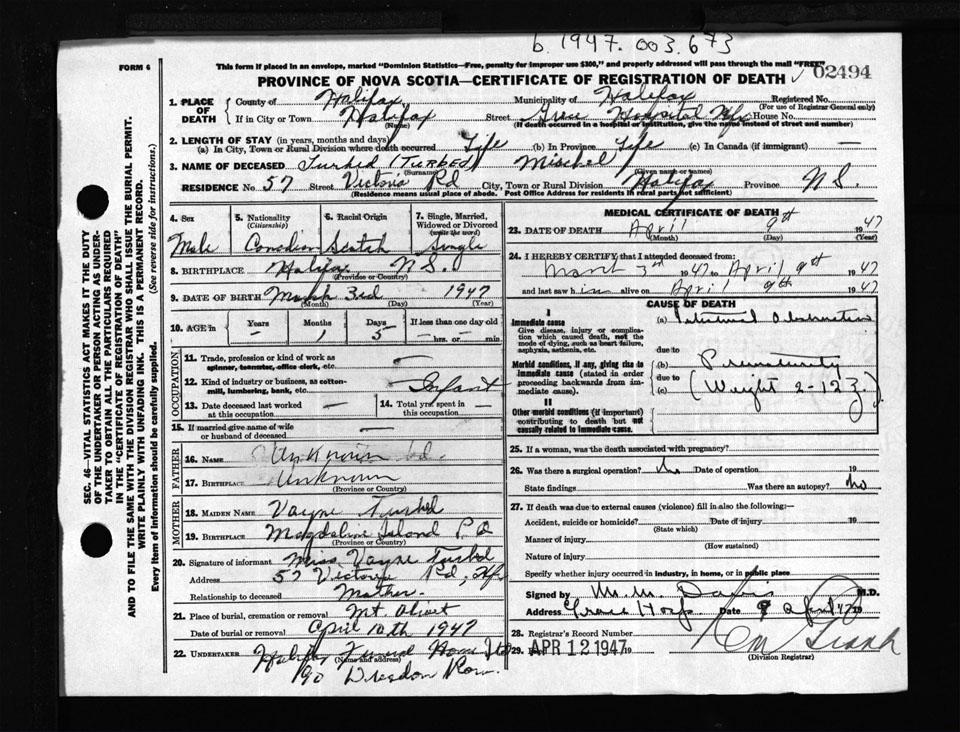 b. 1947. 003.673
FORM 6
This form if placed in an envelope, marked "Dominion Statistics—Free, penalty for improper use $300," and properly addressed will pass through the mail "FREE"
PROVINCE OF NOVA SCOTIA—CERTIFICATE OF REGISTRATION OF DEATH
02494
1. PLACE OF DEATH { County of Halifax Municipality of Halifax Registered No. (For use of Registrar General only)
If in City or Town Halifax (Name) Street Hospital Hfx House No.
(If death occurred in a hospital or institution, give the name instead of street and number)
2. LENGTH OF STAY (in years, months and days)
(a) In City, Town or Rural Division where death occurred Life (b) In Province Life (c) In Canada (if immigrant) —
3. NAME OF DECEASED Turbid (Turbed) Mischel
(Surname) (Given name or names)
RESIDENCE No. 57 Street Victoria Rd City, Town or Rural Division Halifax Province N.S.
(Residence means usual place of abode. Post Office Address for residents in rural parts not sufficient)
4. Sex Male
5. Nationality (Citizenship) Canadian
6. Racial Origin Scotch
7. Single, Married, Widowed or Divorced (write the word) Single
8. BIRTHPLACE Halifax N.S.
(Province or Country)
9. DATE OF BIRTH March 3rd 1947
(Month) (Day) (Year)
10. AGE in { Years — Months 1 Days 5 If less than one day old — hrs. or min.
OCCUPATION
11. Trade, profession or kind of work as spinner, teamster, office clerk, etc. —
12. Kind of industry or business, as cotton-mill, lumbering, bank, etc. Infant
13. Date deceased last worked at this occupation —
14. Total yrs. spent in this occupation —
15. If married give name of wife or husband of deceased —
FATHER
16. NAME Unknown
17. BIRTHPLACE Unknown
(Province or Country)
MOTHER
18. MAIDEN NAME Vayne Turbid
19. BIRTHPLACE Magdalin Island P.Q
(Province or Country)
20. Signature of informant Miss Vayne Turbid
Address 57 Victoria Rd, Hfx
Relationship to deceased Mother
21. Place of burial, cremation or removal Mt. Olivet
Date of burial or removal April 10th 1947
22. UNDERTAKER Halifax Funeral Home Ltd
(Name and address)
90 Dresden Row.
MEDICAL CERTIFICATE OF DEATH
23. DATE OF DEATH April 9th 1947
(Month) (Day) (Year)
24. I HEREBY CERTIFY that I attended deceased from:
March 3rd 1947 to April 9th 1947
and last saw him alive on April 9th 1947
CAUSE OF DEATH
I
Immediate cause (a) Intestinal Obstruction
Give disease, injury or complication which caused death, not the mode of dying, such as heart failure, asphyxia, asthenia, etc.
due to
Morbid conditions, if any, giving rise to immediate cause (stated in order proceeding backwards from immediate cause).
(b) Prematurity
due to
(c) (Weight 2-12 3.)
II
Other morbid conditions (if important) contributing to death but not causally related to immediate cause.
25. If a woman, was the death associated with pregnancy?
26. Was there a surgical operation? No Date of operation 19
State findings Was there an autopsy? No
27. If death was due to external causes (violence) fill in also the following:—
Accident, suicide or homicide? Date of injury 19
(State which)
Manner of injury
(How sustained)
Nature of injury
Specify whether injury occurred in industry, in home, or in public place
Signed by M. M. Davis M.D.
Address Grace Hosp. Date 9 April 47 19
28. Registrar's Record Number
29. APR 12 1947 19
(Division Registrar)
SEC. 46—VITAL STATISTICS ACT MAKES IT THE DUTY OF THE UNDERTAKER OR PERSON ACTING AS UNDERTAKER TO OBTAIN ALL THE PARTICULARS REQUIRED IN THE "CERTIFICATE OF REGISTRATION OF DEATH" AND TO FILE THE SAME WITH THE DIVISION REGISTRAR WHO SHALL ISSUE THE BURIAL PERMIT.
WRITE PLAINLY WITH UNFADING INK. THIS IS A PERMANENT RECORD.
Every item of information should be carefully supplied. (See reverse side for instructions.)